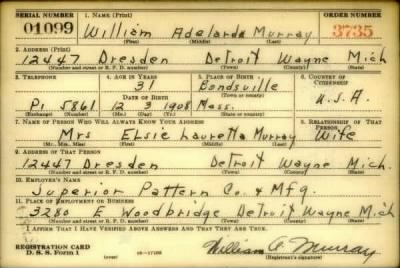 SERIAL NUMBER 1. NAME (Print) ORDER NUMBER
01099 William Adelarde Murray 3735
(First) (Middle) (Last)
2. ADDRESS (Print)
12447 Dresden Detroit Wayne Mich
(Number and street or R. F. D. number) (Town) (County) (State)
3. TELEPHONE 4. AGE IN YEARS 5. PLACE OF BIRTH 6. COUNTRY OF CITIZENSHIP
31 Bondsville
DATE OF BIRTH (Town or county)
Pi 5861 12 3 1908 Mass. U.S.A.
(Exchange) (Number) (Mo.) (Day) (Yr.) (State or country)
7. NAME OF PERSON WHO WILL ALWAYS KNOW YOUR ADDRESS 8. RELATIONSHIP OF THAT PERSON
Mrs Elsie Lauretta Murray Wife
(Mr., Mrs., Miss) (First) (Middle) (Last)
9. ADDRESS OF THAT PERSON
12447 Dresden Detroit Wayne Mich.
(Number and street or R. F. D. number) (Town) (County) (State)
10. EMPLOYER'S NAME
Superior Pattern Co. & Mfg.
11. PLACE OF EMPLOYMENT OR BUSINESS
3280 E Woodbridge Detroit Wayne Mich
(Number and street or R. F. D. number) (Town) (County) (State)
I AFFIRM THAT I HAVE VERIFIED ABOVE ANSWERS AND THAT THEY ARE TRUE.
REGISTRATION CARD William A. Murray
D. S. S. Form 1 (over) (Registrant's signature)